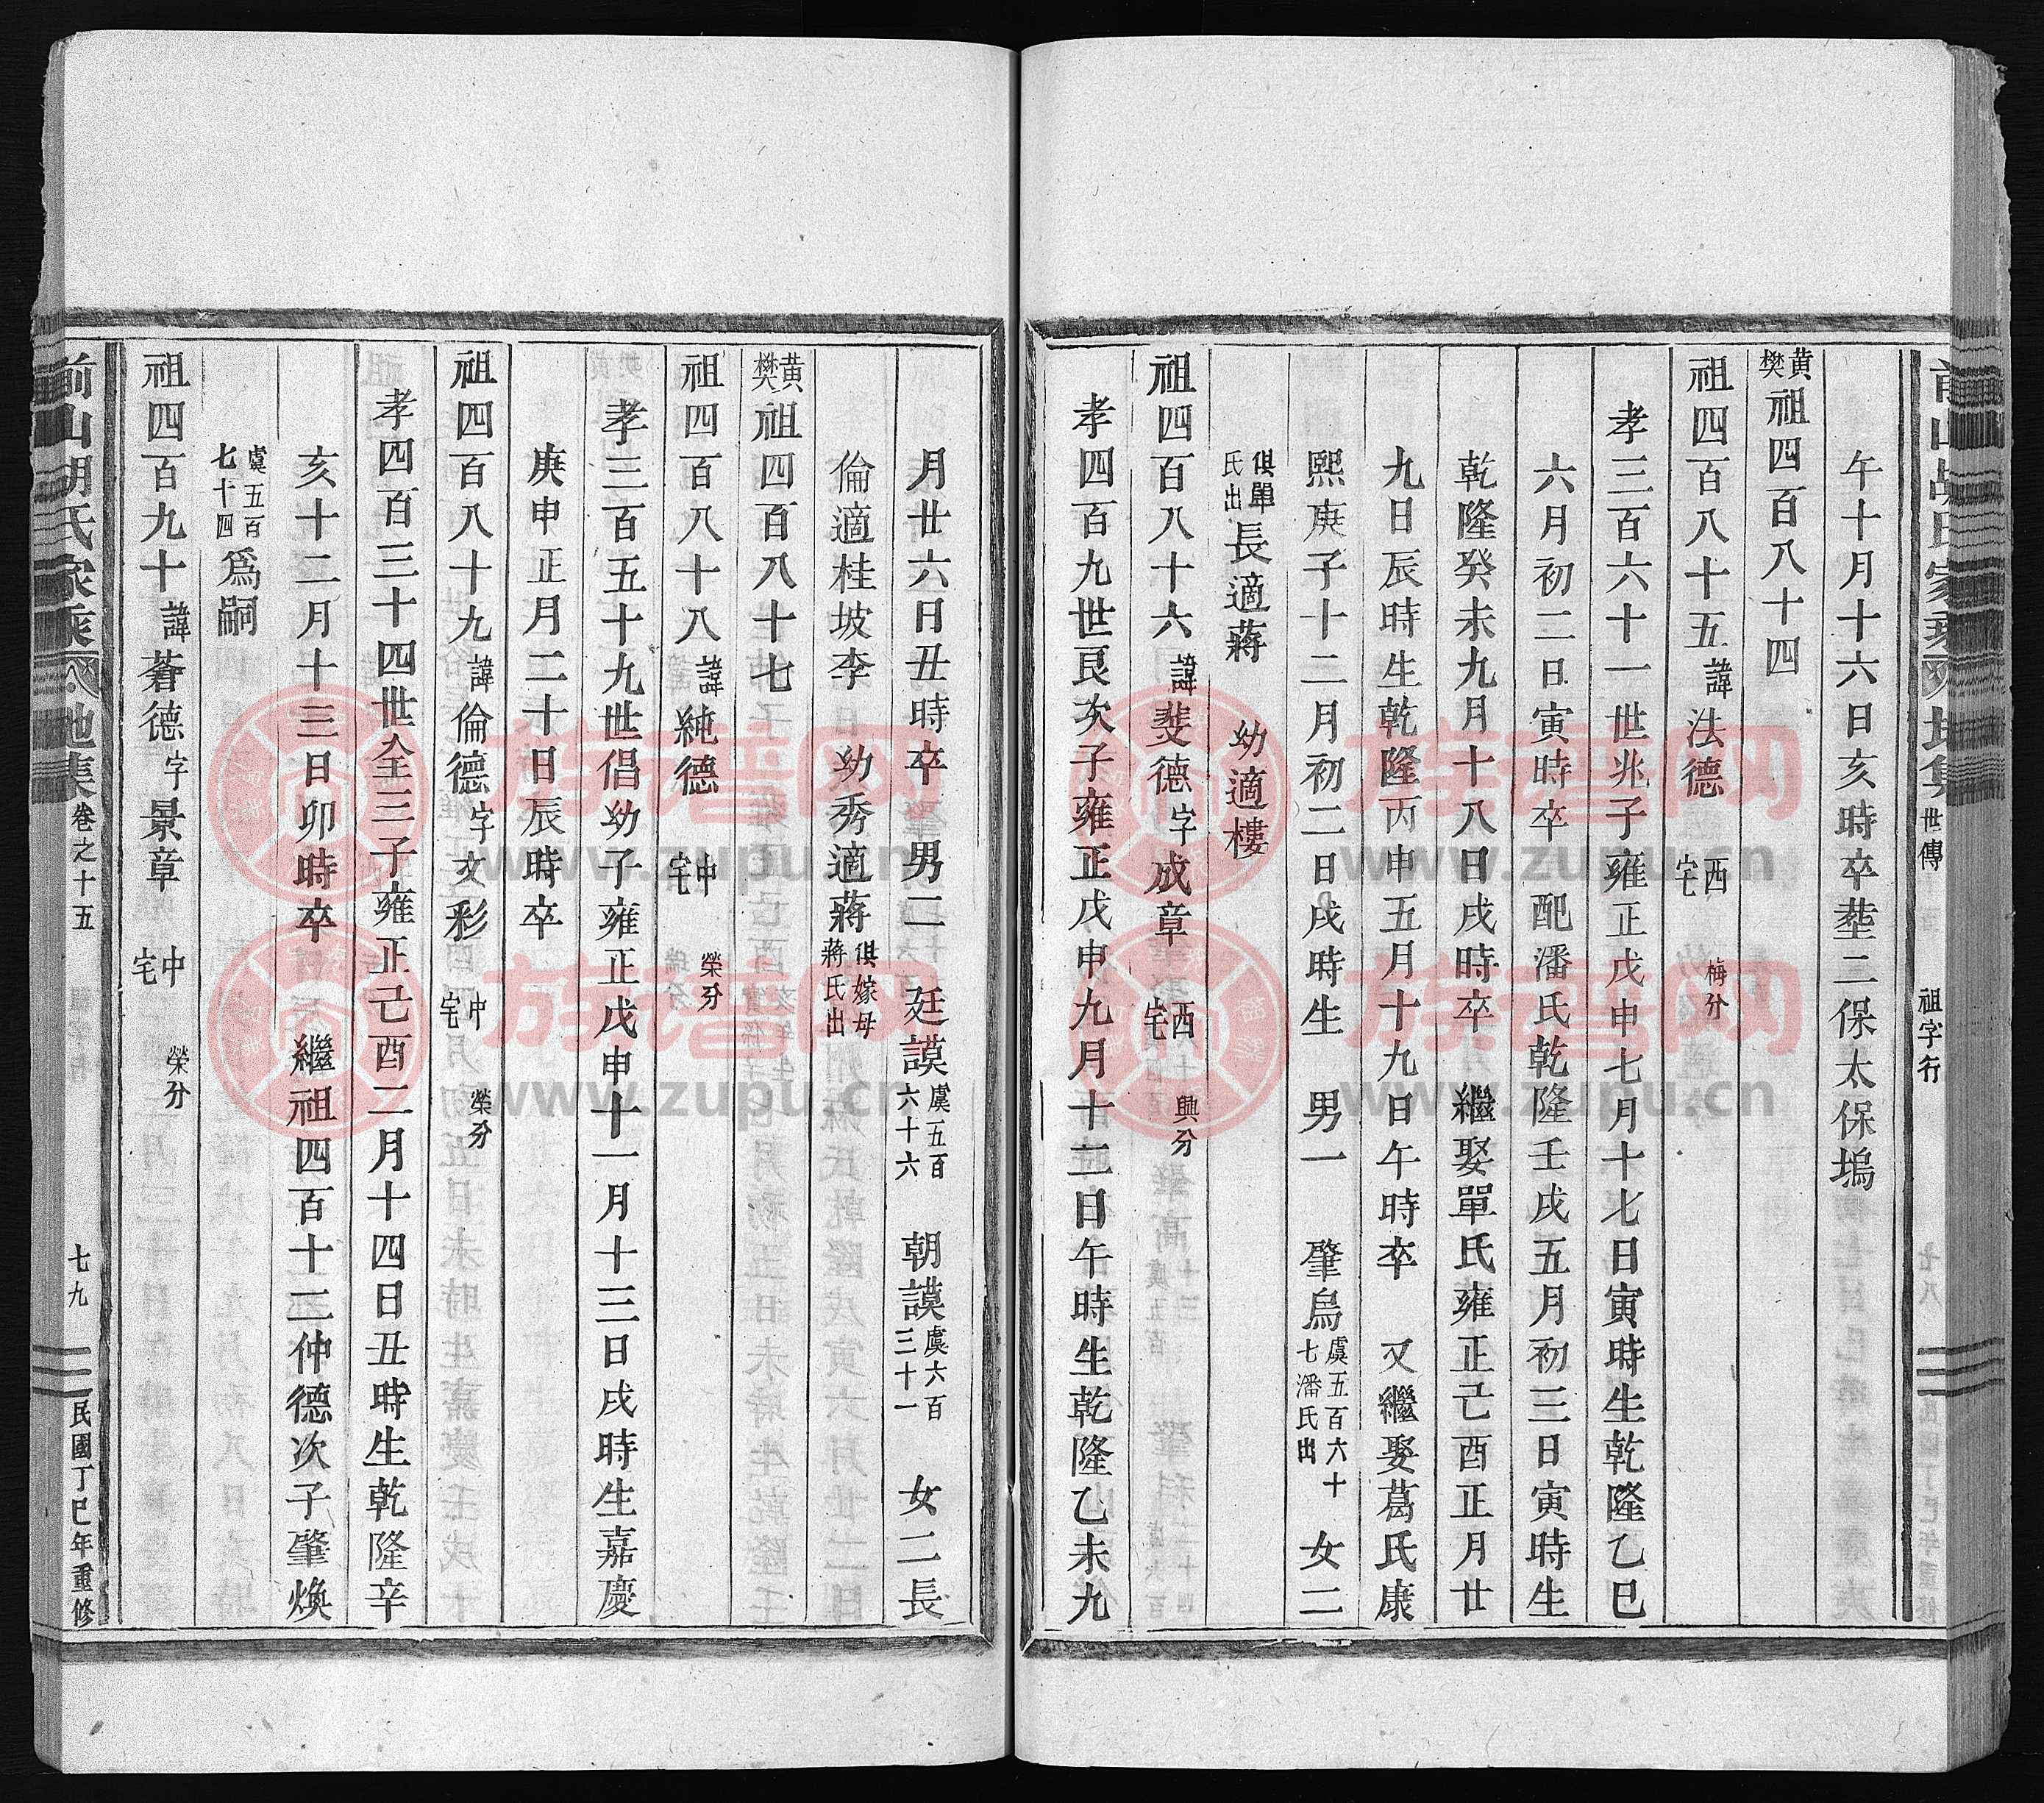 世傳
祖字行
午十月十六日亥時卒塟二保太保塢
黄樊祖四百八十四
祖四百八十五諱法德 西宅 梅分
孝三百六十一世兆子雍正戊申七月十七日寅時生乾隆乙巳
六月初二日寅時卒 配潘氏乾隆壬戌五月初三日寅時生
乾隆癸未九月十八日戌時卒 繼娶單氏雍正己酉正月廿
九日辰時生乾隆丙申五月十九日午時卒 又繼娶葛氏康
熙庚子十二月初二日戌時生 男一 肇烏虞五百六十七潘氏出 女二
俱單氏出長適蔣 幼適樓
祖四百八十六諱斐德字成章 西宅 興分
孝四百九世艮次子雍正戊申九月十二日午時生乾隆乙未九
月廿六日丑時卒 男二 廷謨虞五百六十六 朝謨虞六百三十一 女二長
倫適桂坡李 幼秀適蔣俱嫁母蔣氏出
黄樊祖四百八十七
祖四百八十八諱純德 中宅 榮分
孝三百五十九世倡幼子雍正戊申十一月十三日戌時生嘉慶
庚申正月二十日辰時卒
祖四百八十九諱倫德字文彩 中宅 榮分
孝四百三十四世全三子雍正己酉二月十四日丑時生乾隆辛
亥十二月十三日卯時卒 繼祖四百十二仲德次子肇煥
虞五百七十四爲嗣
祖四百九十諱蒼德字景章 中宅 榮分
前山胡氏家乘 地集 卷之十五 七九 民國丁巳年重修
族譜网
www.zupu.cn
族譜网
www.zupu.cn
族譜网
www.zupu.cn
族譜网
www.zupu.cn